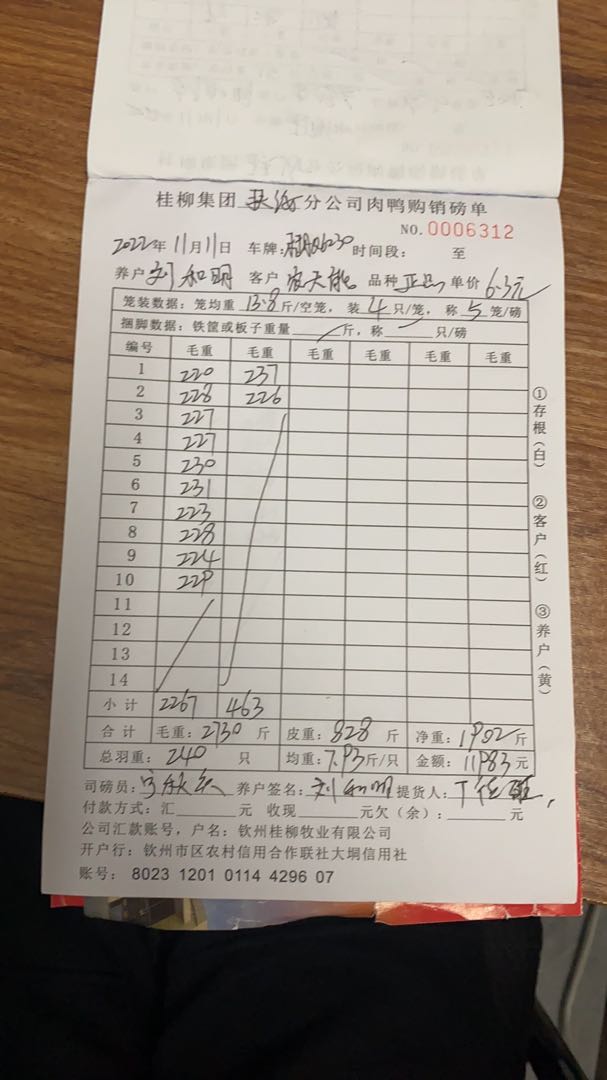 桂柳集团 分公司肉鸭购销磅单
NO.0006312
2022年11月11日 车牌: 时间段: 至
养户 刘和明 客户 品种 单价 6.3元
笼装数据: 笼均重 13.8 斤/空笼, 装 4 只/笼, 称 5 笼/磅
捆脚数据: 铁筐或板子重量 斤, 称 只/磅
编号 毛重 毛重 毛重 毛重 毛重 毛重
1 220 237
2 228 226
3 227
4 227
5 230
6 231
7 223
8 228
9 224
10 229
11
12
13
14
小计 2267 463
合计 毛重: 2730 斤 皮重: 828 斤 净重: 1902 斤
总羽重: 240 只 均重: 7.93 斤/只 金额: 11983 元
司磅员: 养户签名: 刘和明 提货人:
付款方式: 汇 元 收现 元欠(余): 元
公司汇款账号, 户名: 钦州桂柳牧业有限公司
开户行: 钦州市区农村信用合作联社大垌信用社
账号: 8023 1201 0114 4296 07
①存根(白)
②客户(红)
③养户(黄)